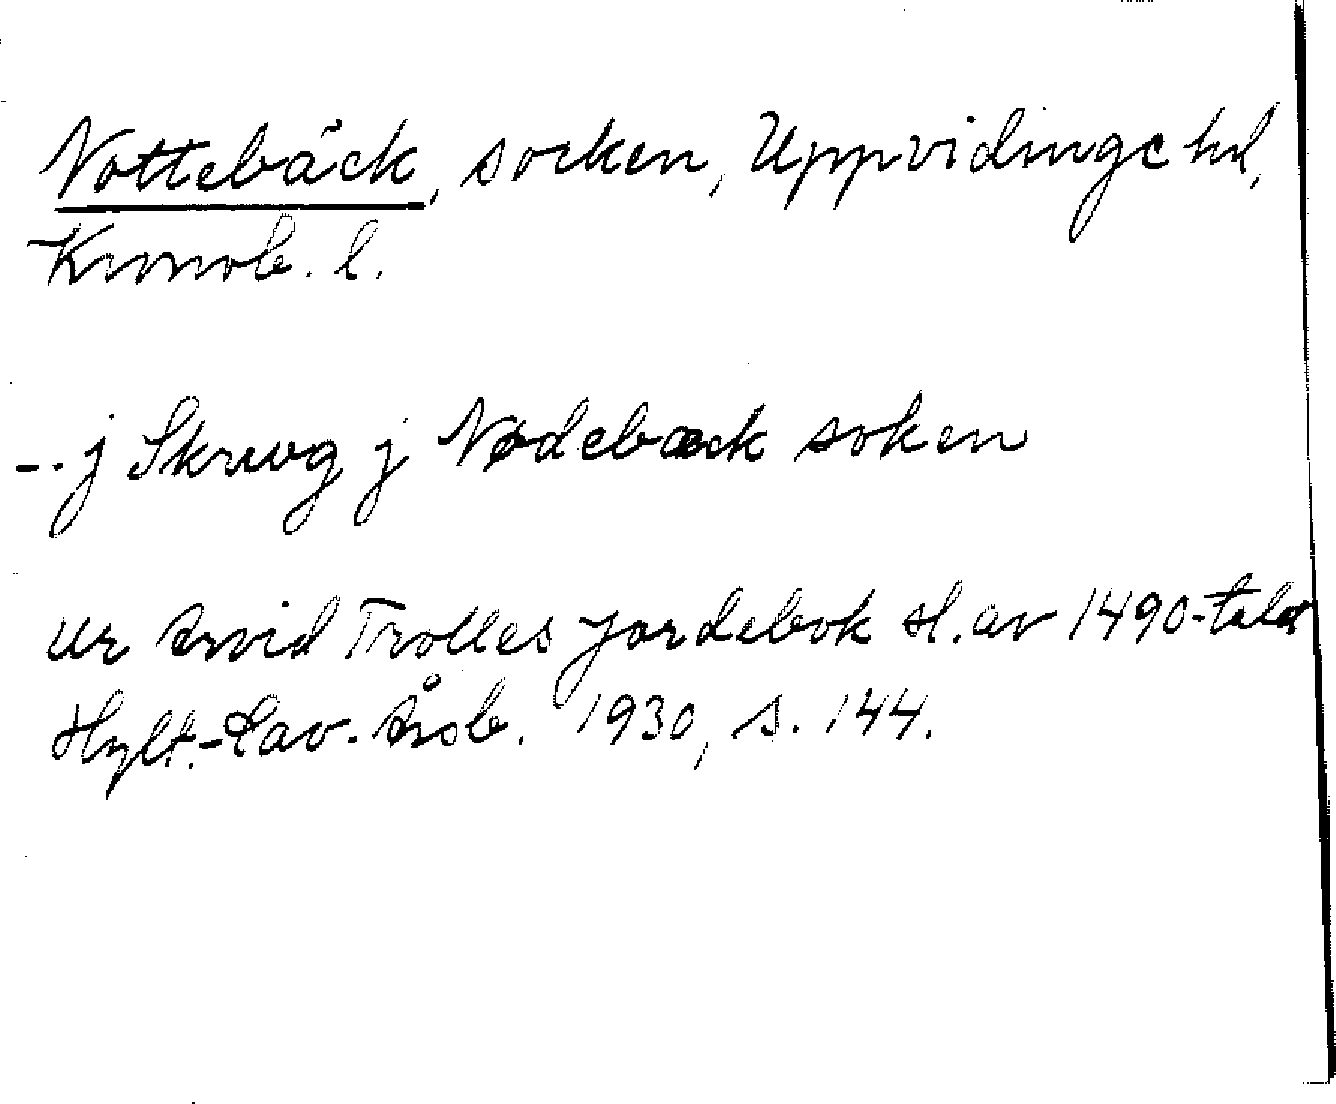 Nottebäck, socken, Uppvidinge hd,
Kronob. l.
-- j Skruvg j Nødebæck soken
Ur Arvid Trolles jordebok sl. av 1490-talet
Hylt.-Cav. Årsb. 1930, s. 144.